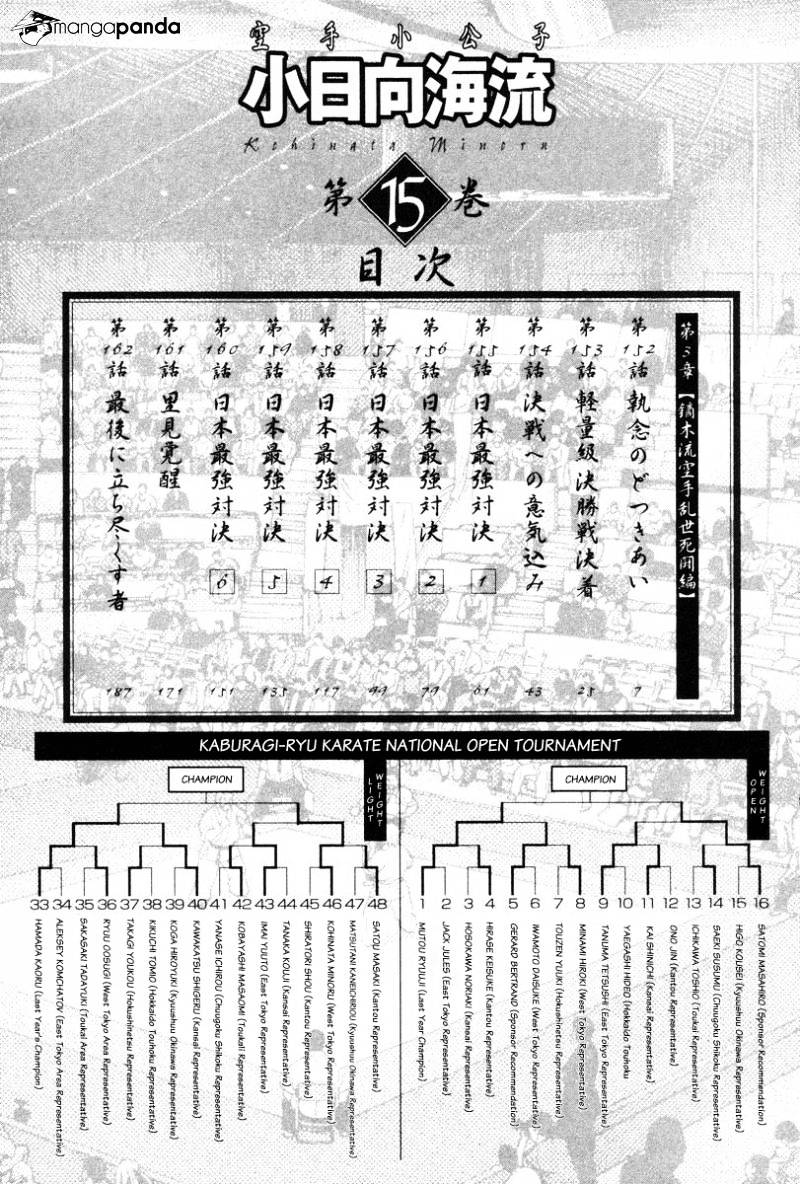 mangapanda
空手小公子
小日向海流
Kohinata Minoru
第15巻
目次
第3章【鏑木流空手乱世死闘編】
第152話 執念のどつきあい 7
第153話 軽量級決勝戦決着 25
第154話 決戦への意気込み 43
第155話 日本最強対決 1 61
第156話 日本最強対決 2 79
第157話 日本最強対決 3 99
第158話 日本最強対決 4 117
第159話 日本最強対決 5 135
第160話 日本最強対決 6 151
第161話 里見覚醒 171
第162話 最後に立ち尽くす者 187
KABURAGI-RYU KARATE NATIONAL OPEN TOURNAMENT
CHAMPION
LIGHT WEIGHT
33 HAMADA KAORU (Last Year's Champion)
34 ALEKSEY KOMCHATOV (East Tokyo Area Representative)
35 SAKASAKI TADAYUKI (Toukai Area Representative)
36 RYUU OOSUGI (West Tokyo Area Representative)
37 TAKAGI YOUKOU (Hokushinetsu Representative)
38 KIKUCHI TOMIO (Hokkaido Touhoku Representative)
39 KOGA HIROYUKI (Kyuushuu Okinawa Representative)
40 KAWAKATSU SHIGERU (Kansai Representative)
41 YANASE ICHIROU (Chuugoku Shikoku Representative)
42 KOBAYASHI MASAOMI (Toukai Representative)
43 IMAI YUUTO (East Tokyo Representative)
44 TANAKA KOUJI (Kansai Representative)
45 SHIRATORI SHOU (Kantou Representative)
46 KOHINATA MINORU (West Tokyo Representative)
47 MATSUTANI KANEICHIROU (Kyuushuu Okinawa Representative)
48 SATOU MASAKI (Kantou Representative)
CHAMPION
OPEN WEIGHT
1 MUTOU RYUUJI (Last Year Champion)
2 JACK JULES (East Tokyo Representative)
3 HOSOKAWA NORIAKI (Kansai Representative)
4 HIRASE KEISUKE (Kantou Representative)
5 GERARD BERTRAND (Sponsor Recommendation)
6 IWAMOTO DAISUKE (West Tokyo Representative)
7 TOUZEN YUUKI (Hokushinetsu Representative)
8 MINAMI HIROKI (West Tokyo Representative)
9 TANUMA TETSUSHI (East Tokyo Representative)
10 YAEGASHI HIDEO (Hokkaido Touhoku
11 KAI SHINICHI (Kansai Representative)
12 ONO JIN (Kantou Representative)
13 ICHIKAWA TOSHIO (Toukai Representative)
14 SAEKI SUSUMU (Chuugoku Shikoku Representative)
15 HIGO KOUSEI (Kyuushuu Okinawa Representative)
16 SATOMI MASAHIKO (Sponsor Recommendation)